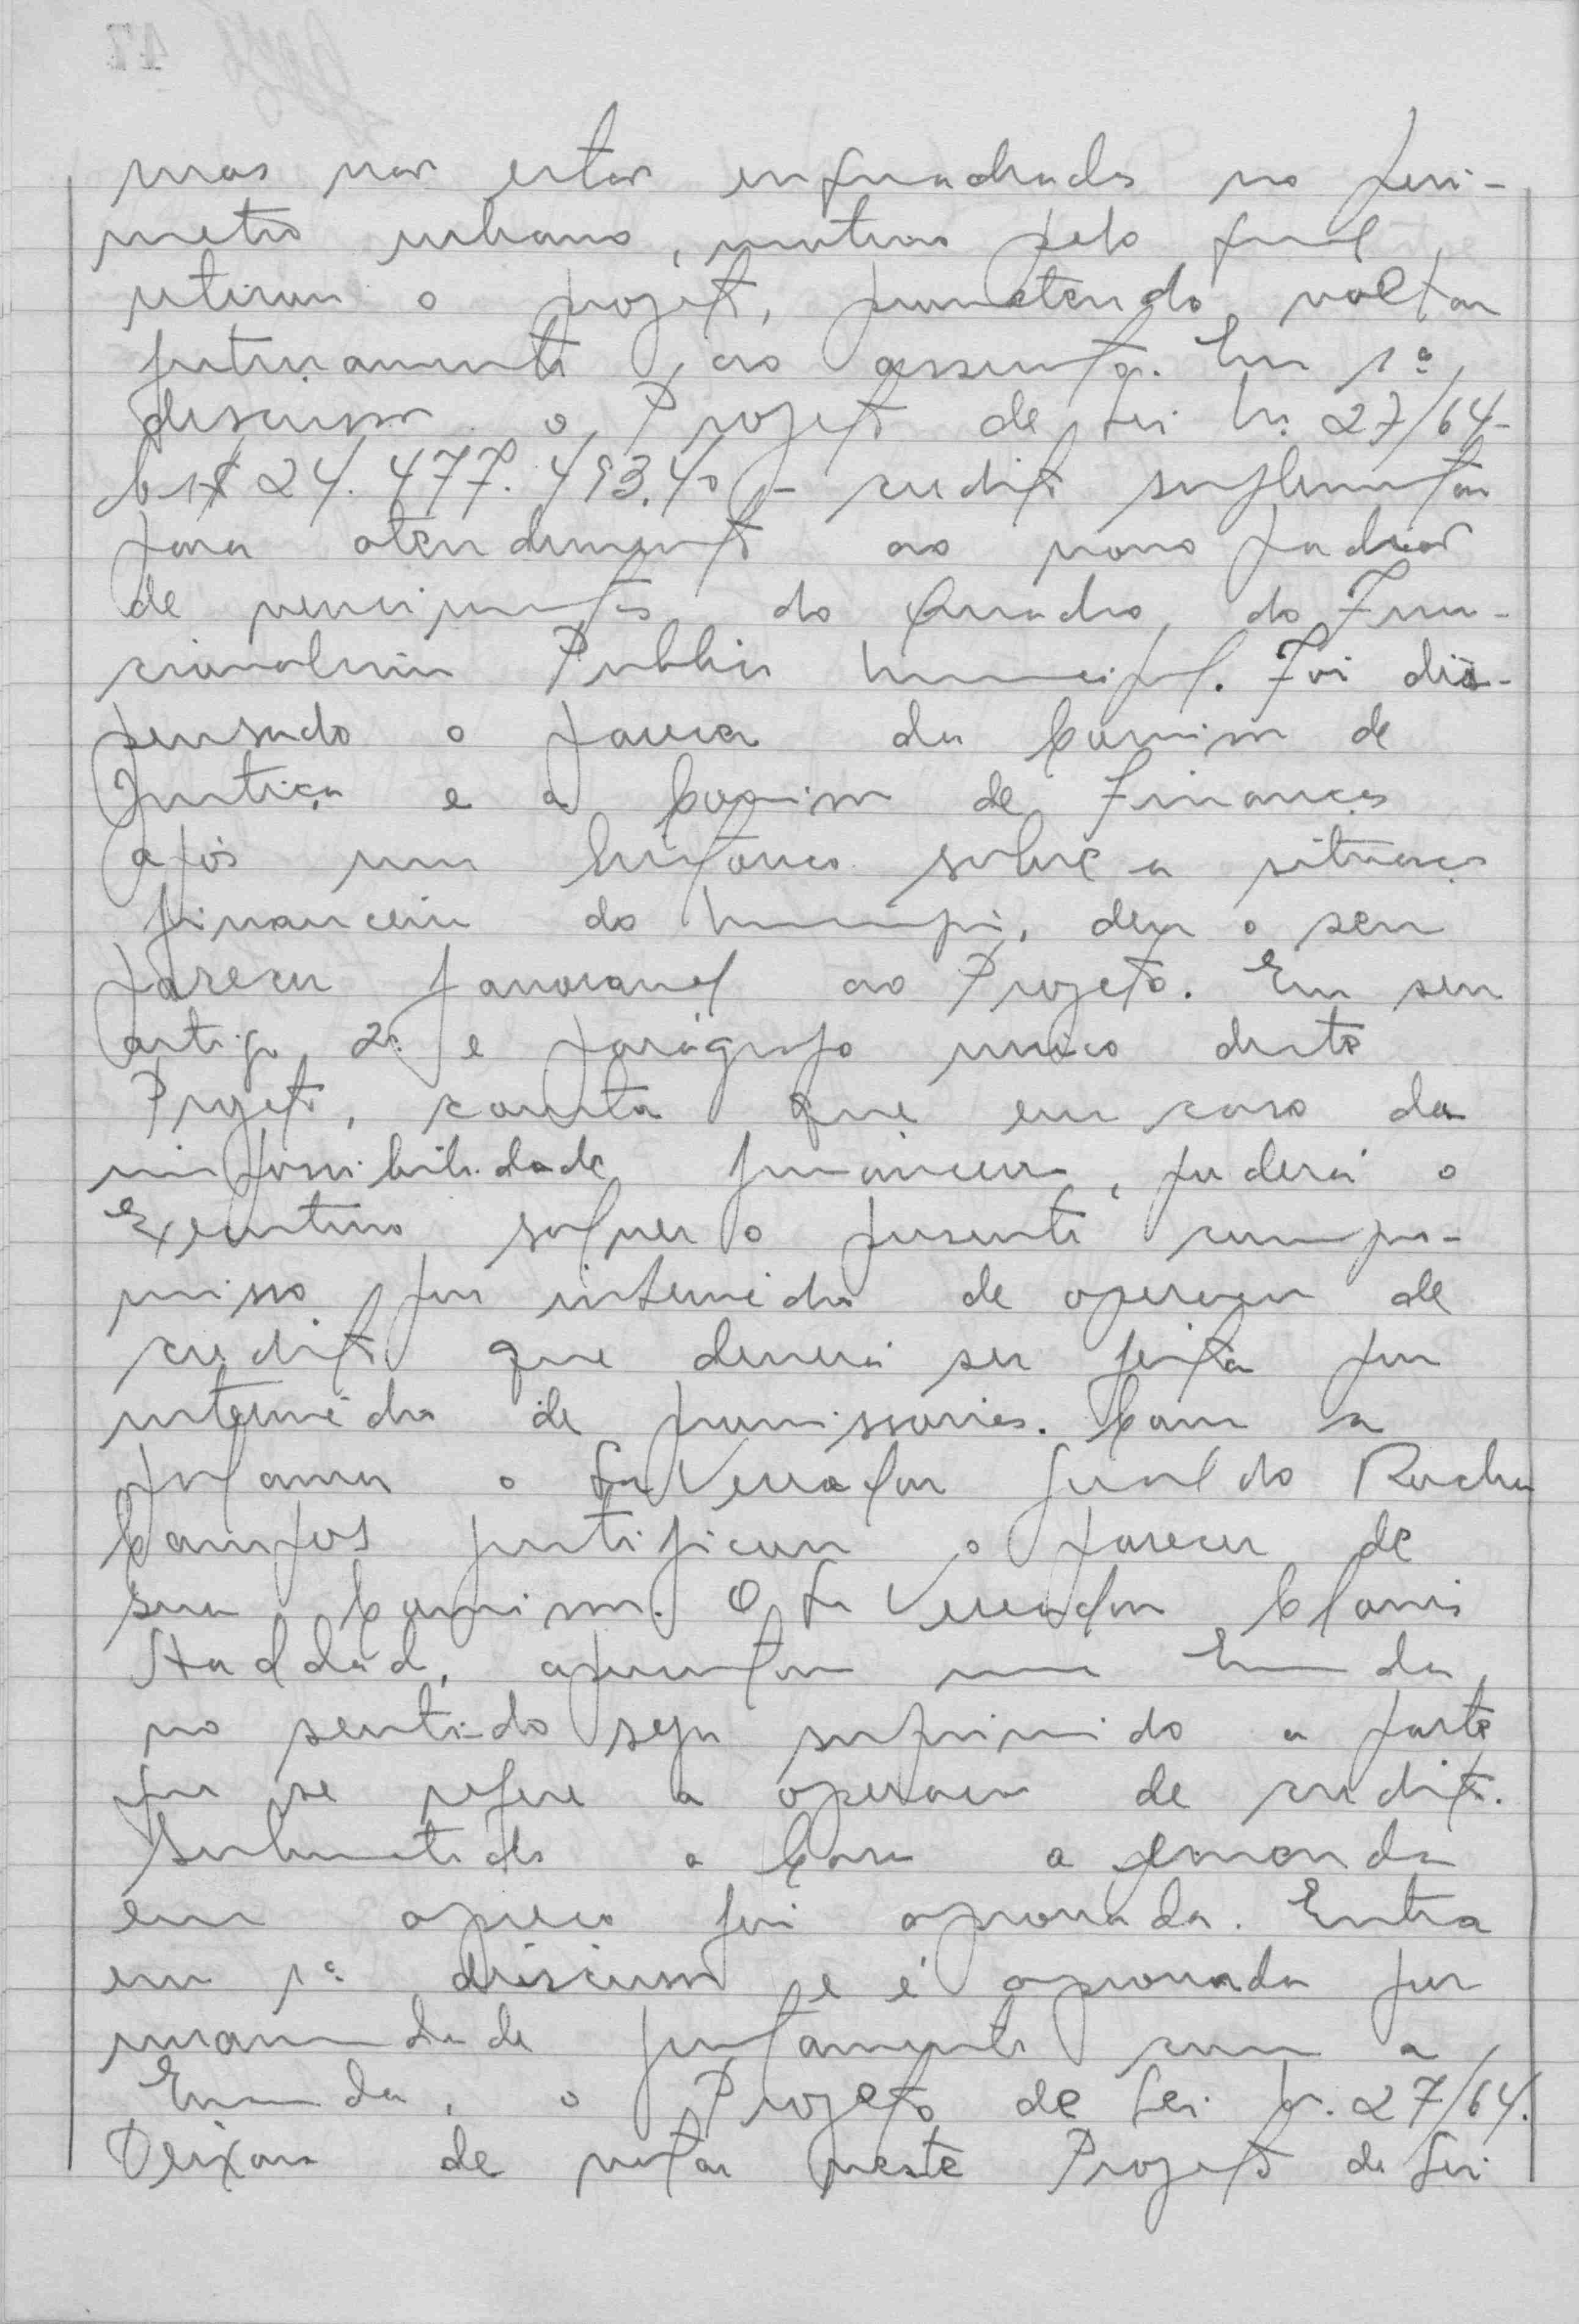 mas não estar enquadrado no peri-
metro urbano, motivo pelo qual
retirou o projeto, prometendo voltar
futuramente ao assunto. Em 1ª
discussão o Projeto de Lei Nº 27/64 -
Cr$ 24.477.493,40 - credito suplementar
para atendimento ao novo padrão
de vencimentos do Quadro do Fun-
cionalismo Publico Municipal. Foi dis-
pensado o parecer da Comissão de
Justiça e a Comissão de Finanças
após um historico sobre a situação
financeira do Municipio, deu o seu
parecer favoravel ao Projeto. Em seu
artigo 2º e parágrafo unico deste
Projeto, consta que em caso da
impossibilidade financeira, poderá o
Executivo solver o presente compro-
misso por intermédio de operação de
credito que deverá ser feita por
intermédio de promissorias. Com a
palavra o Sr Vereador Geraldo Rocha
Campos justificou o parecer de
sua Comissão. O Sr Vereador Clovis
Haddad, apresentou uma Emenda
no sentido seja suprimido a parte
que se refere a operação de credito.
Submetido a Casa a emenda
em apreço foi aprovada. Entra
em 1ª discussão e é aprovada por
unanimidade juntamente com a
Emenda, o Projeto de Lei Nº. 27/64.
Deixou de votar neste Projeto de Lei